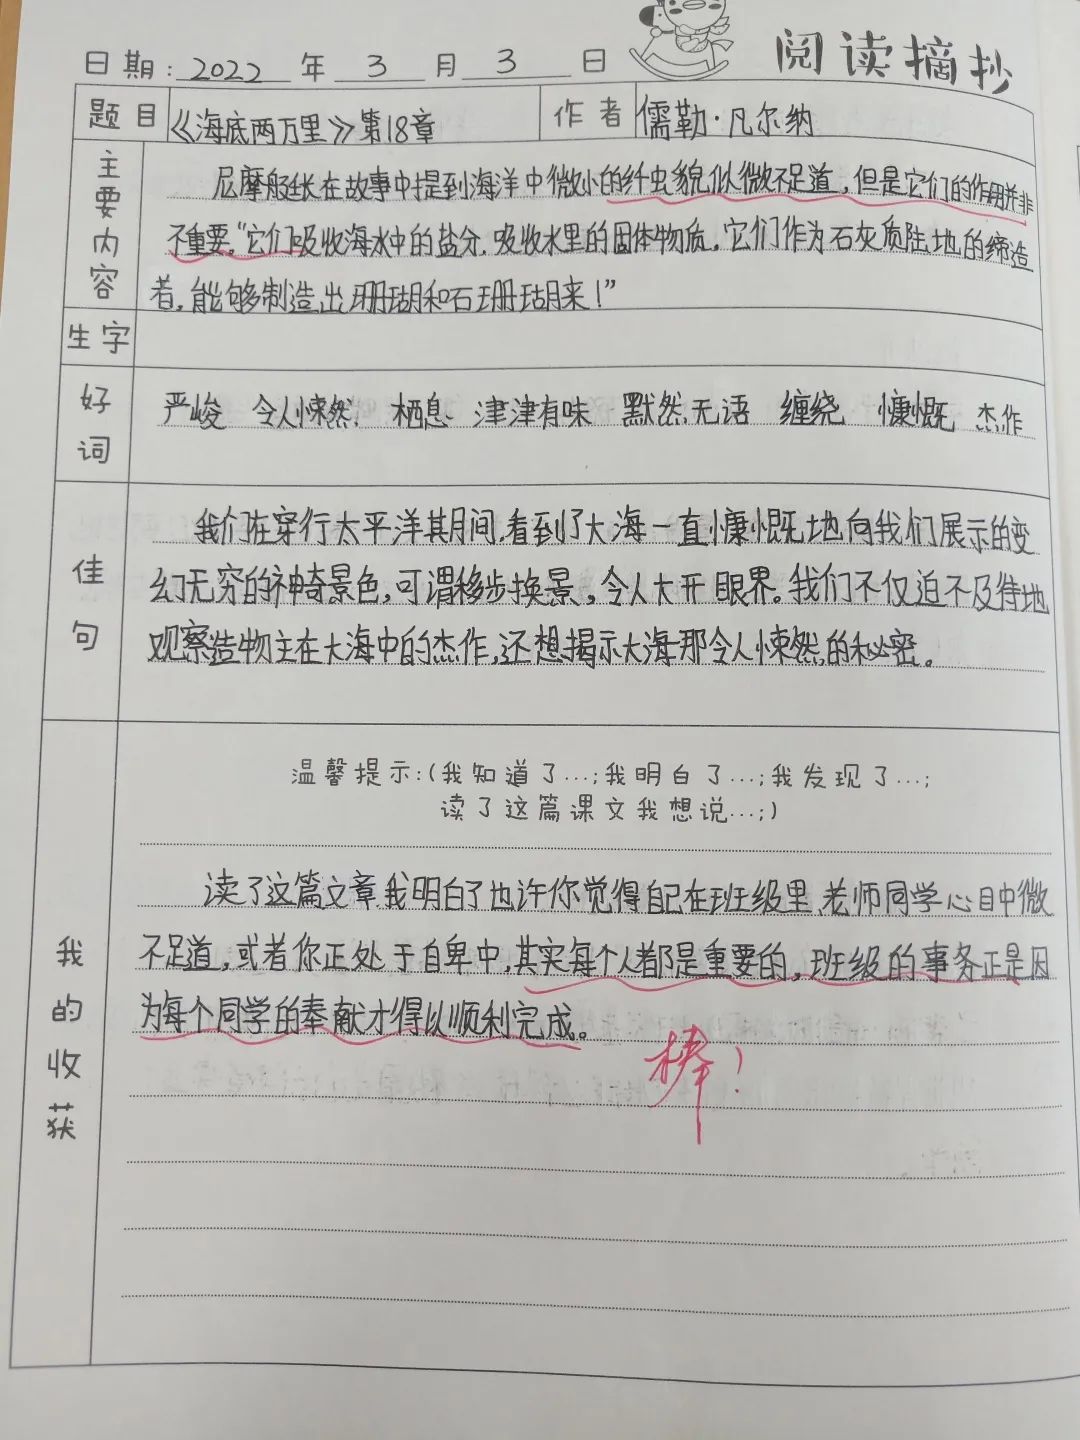 阅读摘抄
日期:2022年3月3日
题目 《海底两万里》第18章 作者 儒勒·凡尔纳
主要内容
尼摩艇长在故事中提到海洋中微小的纤虫貌似微不足道,但是它们的作用并非
不重要。“它们吸收海水中的盐分,吸收水里的固体物质。它们作为石灰质陆地的缔造
者,能够制造出珊瑚和石珊瑚来!”
生字
好词
严峻 令人悚然 栖息 津津有味 默然无语 缠绕 慷慨 杰作
佳句
我们在穿行太平洋其月间,看到了大海一直慷慨地向我们展示的变
幻无穷的神奇景色,可谓移步换景,令人大开眼界。我们不仅迫不及待地
观察造物主在大海中的杰作,还想揭示大海那令人悚然的秘密。
我的收获
温馨提示:(我知道了…;我明白了…;我发现了…;
读了这篇课文我想说…;)
读了这篇文章我明白了也许你觉得自己在班级里、老师同学心目中微
不足道,或者你正处于自卑中,其实每个人都是重要的,班级的事务正是因
为每个同学的奉献才得以顺利完成。
棒!